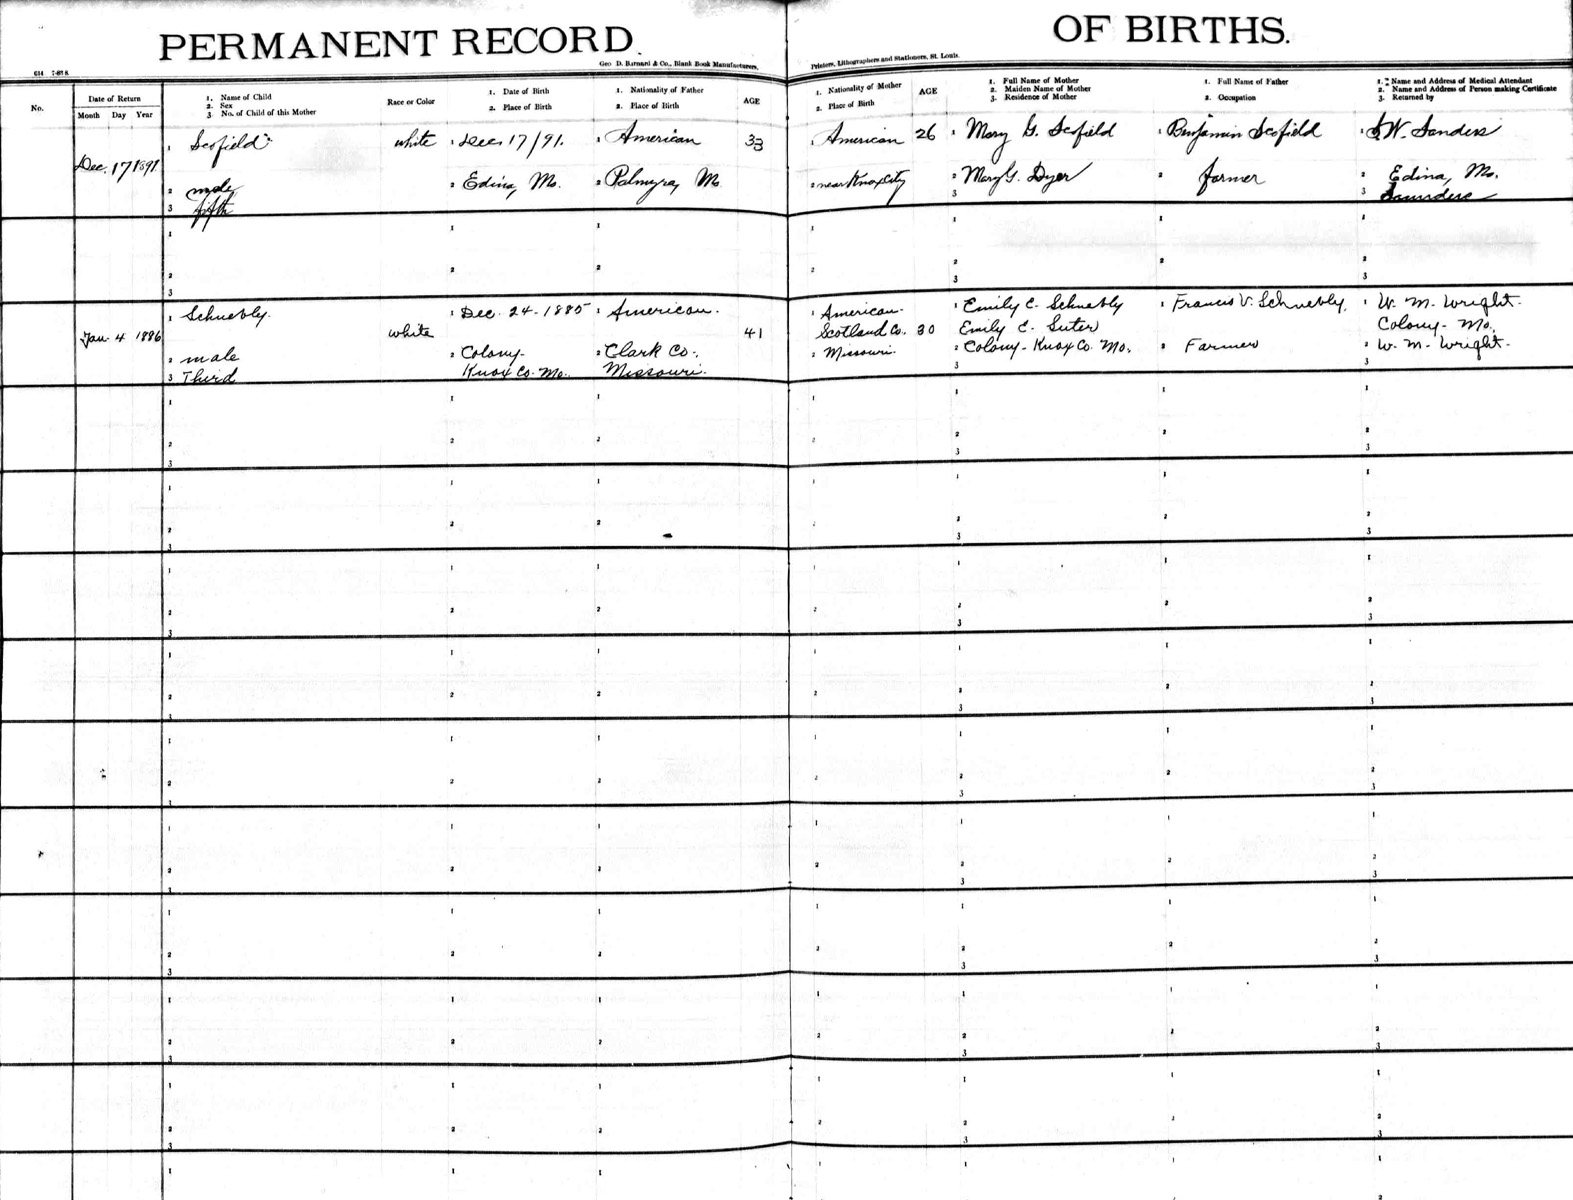 PERMANENT RECORD OF BIRTHS.
614 7-87 S.
Geo D. Barnard & Co., Blank Book Manufacturers, Printers, Lithographers and Stationers, St. Louis.
No.
Date of Return
Month Day Year
1. Name of Child
2. Sex
3. No. of Child of this Mother
Race or Color
1. Date of Birth
2. Place of Birth
1. Nationality of Father
2. Place of Birth
AGE
1. Nationality of Mother
2. Place of Birth
AGE
1. Full Name of Mother
2. Maiden Name of Mother
3. Residence of Mother
1. Full Name of Father
2. Occupation
1. Name and Address of Medical Attendant
2. Name and Address of Person making Certificate
3. Returned by
Dec. 17 1891
1 Scofield
2 male
3 fifth
white
1 Dec 17/91.
2 Edina, Mo.
1 American
2 Palmyra, Mo
33
1 American
2 near Knox City
26
1 Mary G. Scofield
2 Mary G. Dyer
3
1 Benjamin Scofield
2 farmer
1 W. Sanders
2 Edina, Mo.
3 Saunders
Jan. 4 1886
1 Schnebly.
2 male
3 Third
white
1 Dec. 24 - 1885
2 Colony -
Knox Co. Mo.
1 American.
2 Clark Co.
Missouri.
41
1 American -
Scotland Co.
2 Missouri.
30
1 Emily C. Schnebly
Emily C. Suter
2 Colony - Knox Co. Mo.
3
1 Francis V. Schnebly.
2 Farmer
1 W. M. Wright -
Colony - Mo.
2 W. M. Wright -
3